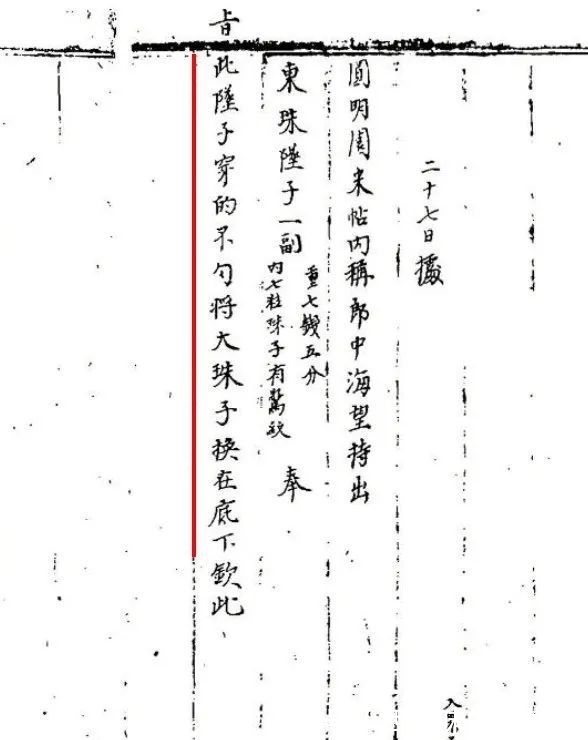 二十七日據
圓明園来帖内稱郎中海望持出
東珠墜子一副
重七錢五分
内七粒珠子有驚紋
奉
旨此墜子穿的不勻將大珠子換在底下欽此